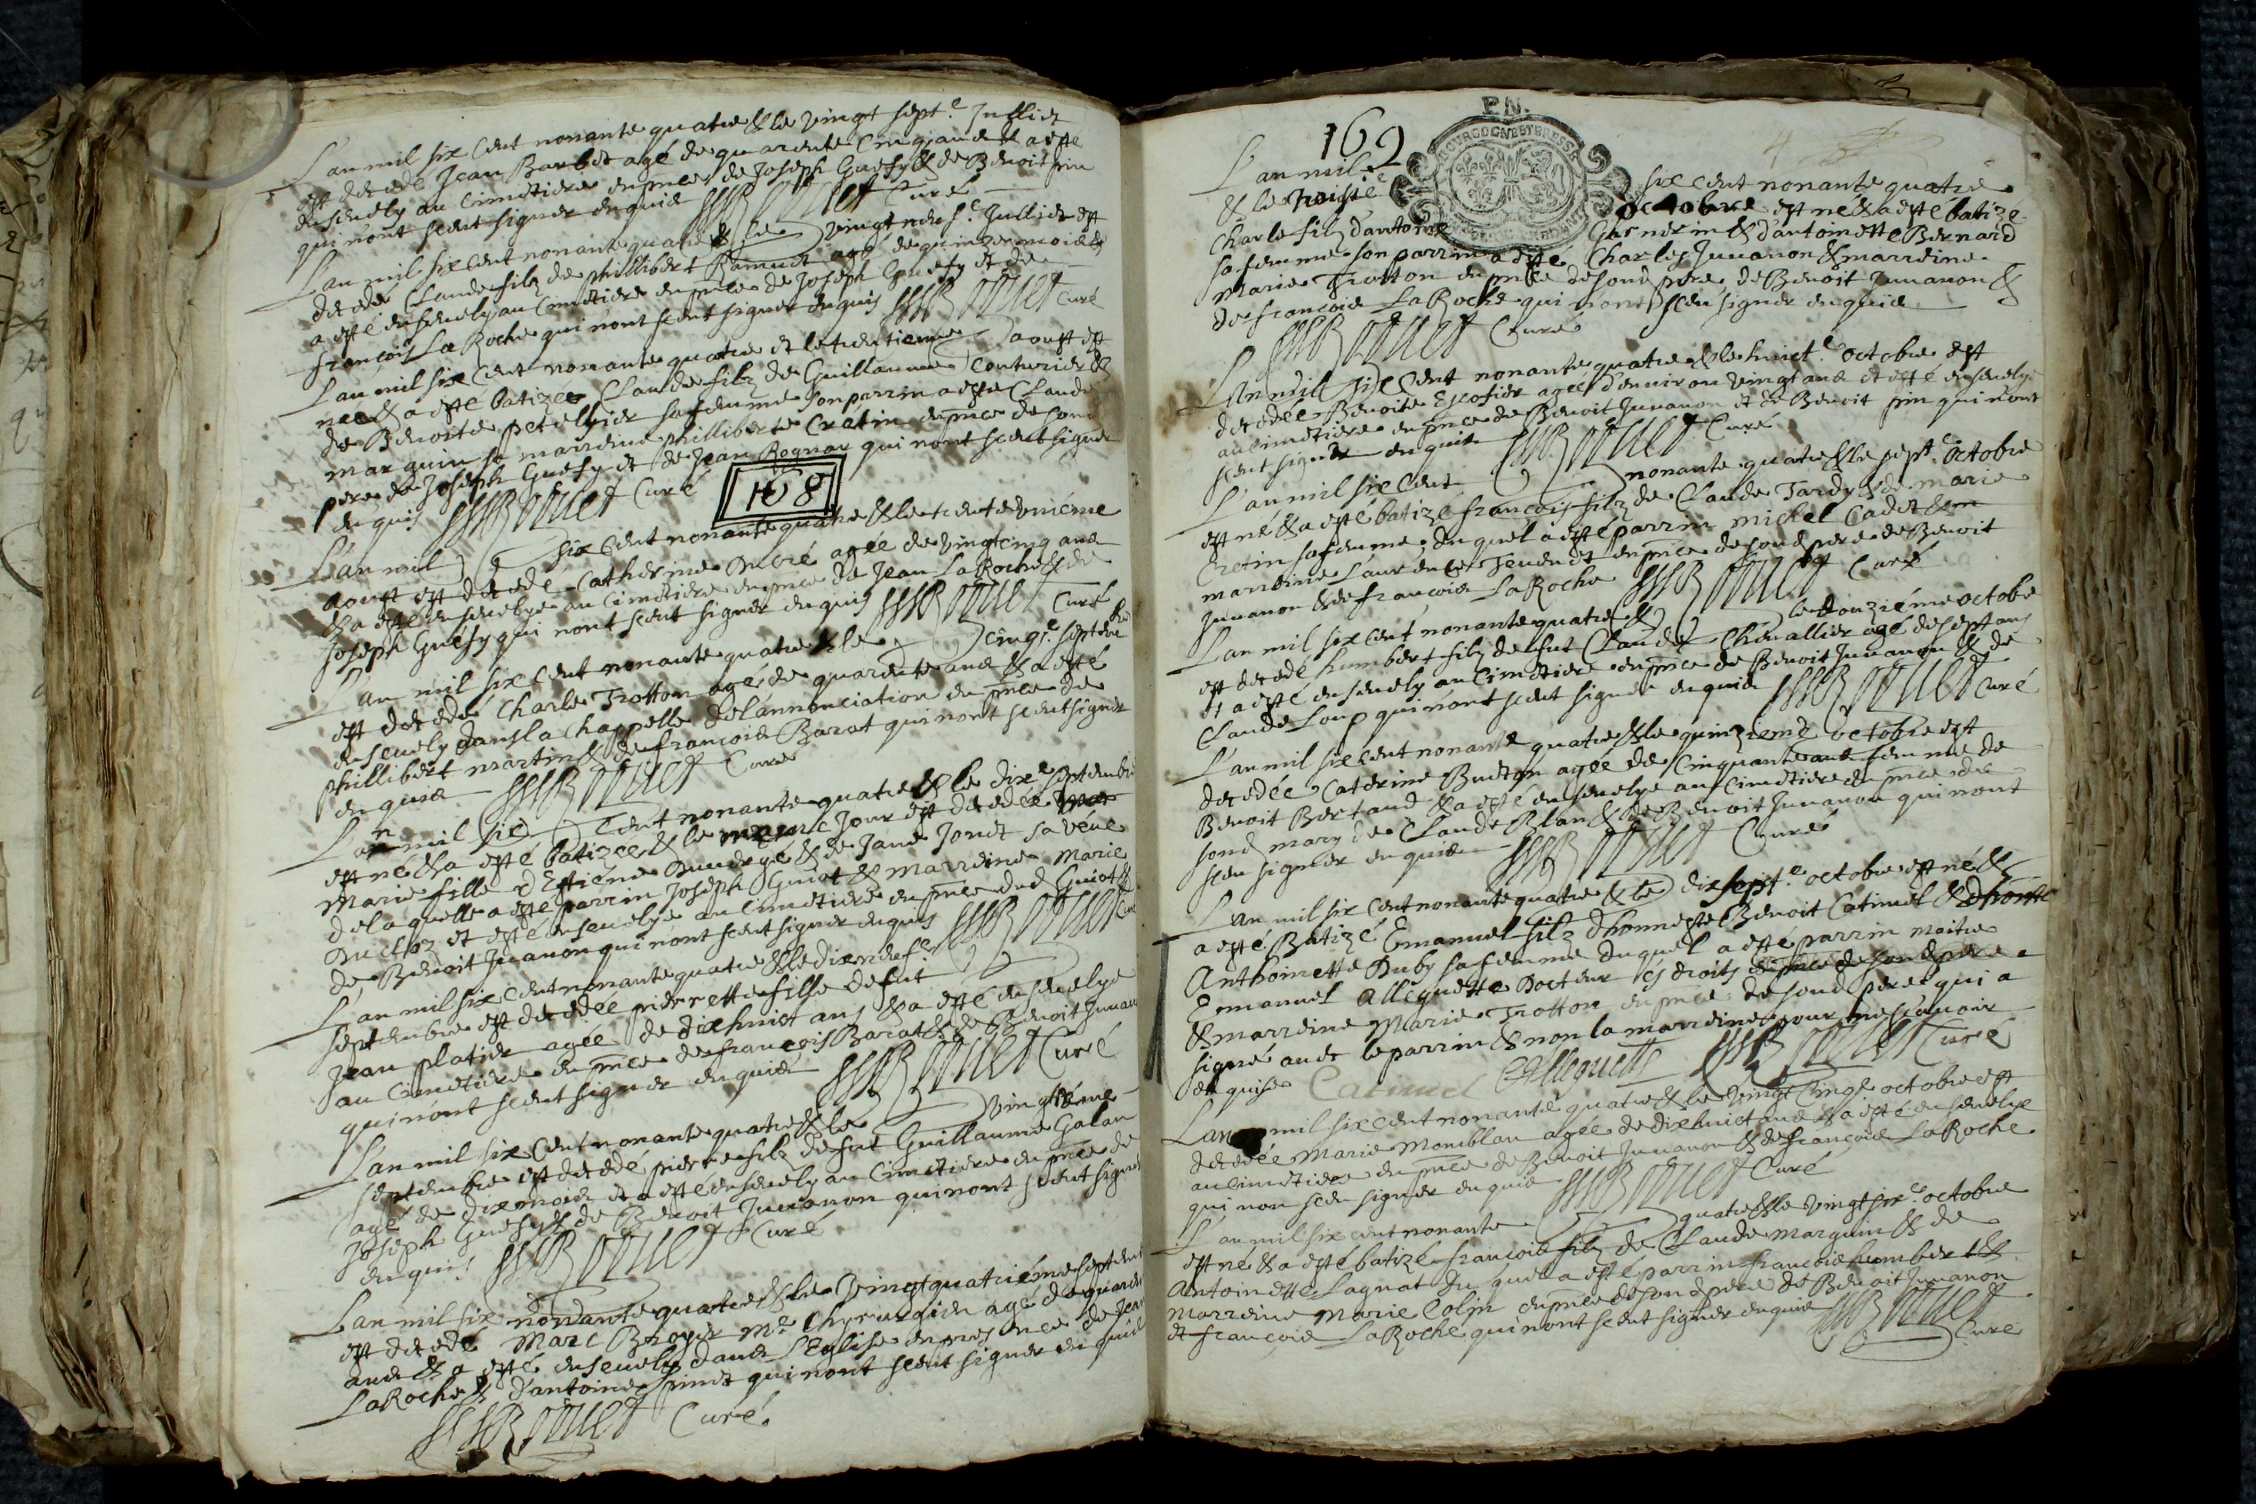 L'an mil six cent nonante quatre & le vingt sept.e Julliet
est decedé Jean Barbet agé de quarente cinq ans & a esté
ensevely au cimetiere en pnce de Joseph Guesy & de Benoit pin
qui nont sceut signer enquis Curé
L'an mil six cent nonante quatre & le vingt neuf.e Julliet est
decedé Claude filz de phillibert agé de quinze mois &
a esté ensevely au cimetiere en pnce de Joseph Guesy et de
françois LaRoche qui nont sceut signer enquis Curé
L'an mil six cent nonante quatre et le trentieme aoust est
nee & a esté batizée Claude filz de Guillaume Couturier &
de Benoiste petelyier sa femme son parrin a esté Claude
marguin sa marreine philliberte Cratin en pnce de sond
pere de Joseph Guesy et de Jean Rognar qui nont sceut signer
enquis Curé
168
L'an mil six cent nonante quatre & le trente unième
aoust est decedé Catherine Dubré agée de vingt cinq ans
& a esté ensevelye au cimetiere en pnce de Jean LaRoche & de
Joseph Guesy qui nont sceut signer enquis Curé
L'an mil six cent nonante quatre & le cinq.e septembre
est decedé Charle Trotton agé de quarente ans & a esté
ensevely dans la chappelle de l'annonciation en pnce de
phillibert martin & de françois Barat qui nont sceut signer
enquis Curé
L'an mil six cent nonante quatre & le dix.e septembre
est né & a esté batizee & le mesme jour est decedée
Marie fille d'Estiene Duverge & de Jane Jonet sa veuve
de laquelle a esté parrin Joseph Guiot & marreine Marie
Ducloz et esté ensevelye au cimetiere en pnce dud Guiot &
de Benoit Juvanon qui nont sceut signer enquis Curé
L'an mil six cent nonante quatre & le dix neuf.e
septembre est decedée pierrette fille de fut
Jean platier agée de dixhuict ans & a esté ensevelye
au cimetiere en pnce de françois Barat & de Benoit Juvanon
qui nont sceut signer enquis Curé
L'an mil six cent nonante quatre & le vingtième
septembre est decedé pierre filz de fut Guillaume Galan
agé de dix mois et a esté ensevely au cimetiere en pnce de
Joseph Guesy & de Benoit Juvanon qui nont sceut signer
enquis Curé
L'an mil six nonante quatre & le vingt quatrième septembre
est decedé Marc Broyer M.e Chyrurgien agé de quarente
ans & a esté ensevely dans l'Eglise en presence de Jean
LaRoche & d'antoine pinet qui nont sceut signer enquis
Curé
169
P.N.
BOURGOGNE ET BRESSE
L'an mil six cent nonante quatre
& le troisie octobre est né & a esté batizé
Charle filz d'antoine Garnerin & d'antoinette Bernard
sa femme son parrin a esté Charles Juvanon & marreine
Marie Trotton en pnce de sond pere de Benoit Juvanon &
de françois LaRoche qui nont sceu signer enquis
Curé
L'an mil six cent nonante quatre & le huict.e octobre est
decedée Benoite Escofier agée d'environ vingt ans et esté ensevelye
au cimetiere en pnce de Benoit Juvanon et de Benoit pin qui nont
sceut signer enquis Curé
L'an mil six cent nonante quatre & le sept.e octobre
est né & a esté batizé françois filz de Claude Tardy & de marie
Cretin sa femme duquel a esté parrin michel Cadet &
marreine Laurence Tevenet en pnce de sond pere de Benoit
Juvanon & de françois LaRoche Curé
L'an mil six cent nonante quatre & le douzième octobre
est decedé humbert filz de fut Claude Chevallier agé de sept ans
et a esté ensevely au cimetiere en pnce de Benoit Juvanon & de
Claude Loup qui nont sceut signer enquis Curé
L'an mil six cent nonante quatre & le quinzieme octobre est
decedée Caterine Breton agee de cinquante ans femme de
Benoit Bertaud & a esté ensevelye au cimetiere en pnce de
sond mary de Claude Blan & de Benoit Juvanon qui nont
sceu signer enquis Curé
L'an mil six cent nonante quatre & le dixsept.e octobre est né &
a esté Batizé Emanuel filz d'honneste Benoit Catimel & d'honte
Anthoinette Duby sa femme duquel a esté parrin maitre
Emanuel Allequette Docteur es droits
& marreine Marie Trotton en pnce de sond pere qui a
signé avec le parrin & non la marreine pour ne sçavoir
enquise Catimel Allequette Curé
L'an mil six cent nonante quatre & le vingt cinqe octobre est
decedée Marie Momblan agee de dixhuict ans & a esté ensevelye
au cimetiere en pnce de Benoit Juvanon & de françois LaRoche
qui non sceu signer enquis Curé
L'an mil six cent nonante quatre & le vingt six.e octobre
est né & a esté batizé françois filz de Claude marguin & de
Antoinette Lagnat duquel a esté parrin françois humbert &
marreine Marie Colin en pnce de son pere de Benoit Juvanon
et françois LaRoche qui nont sceut signer enquis
Curé